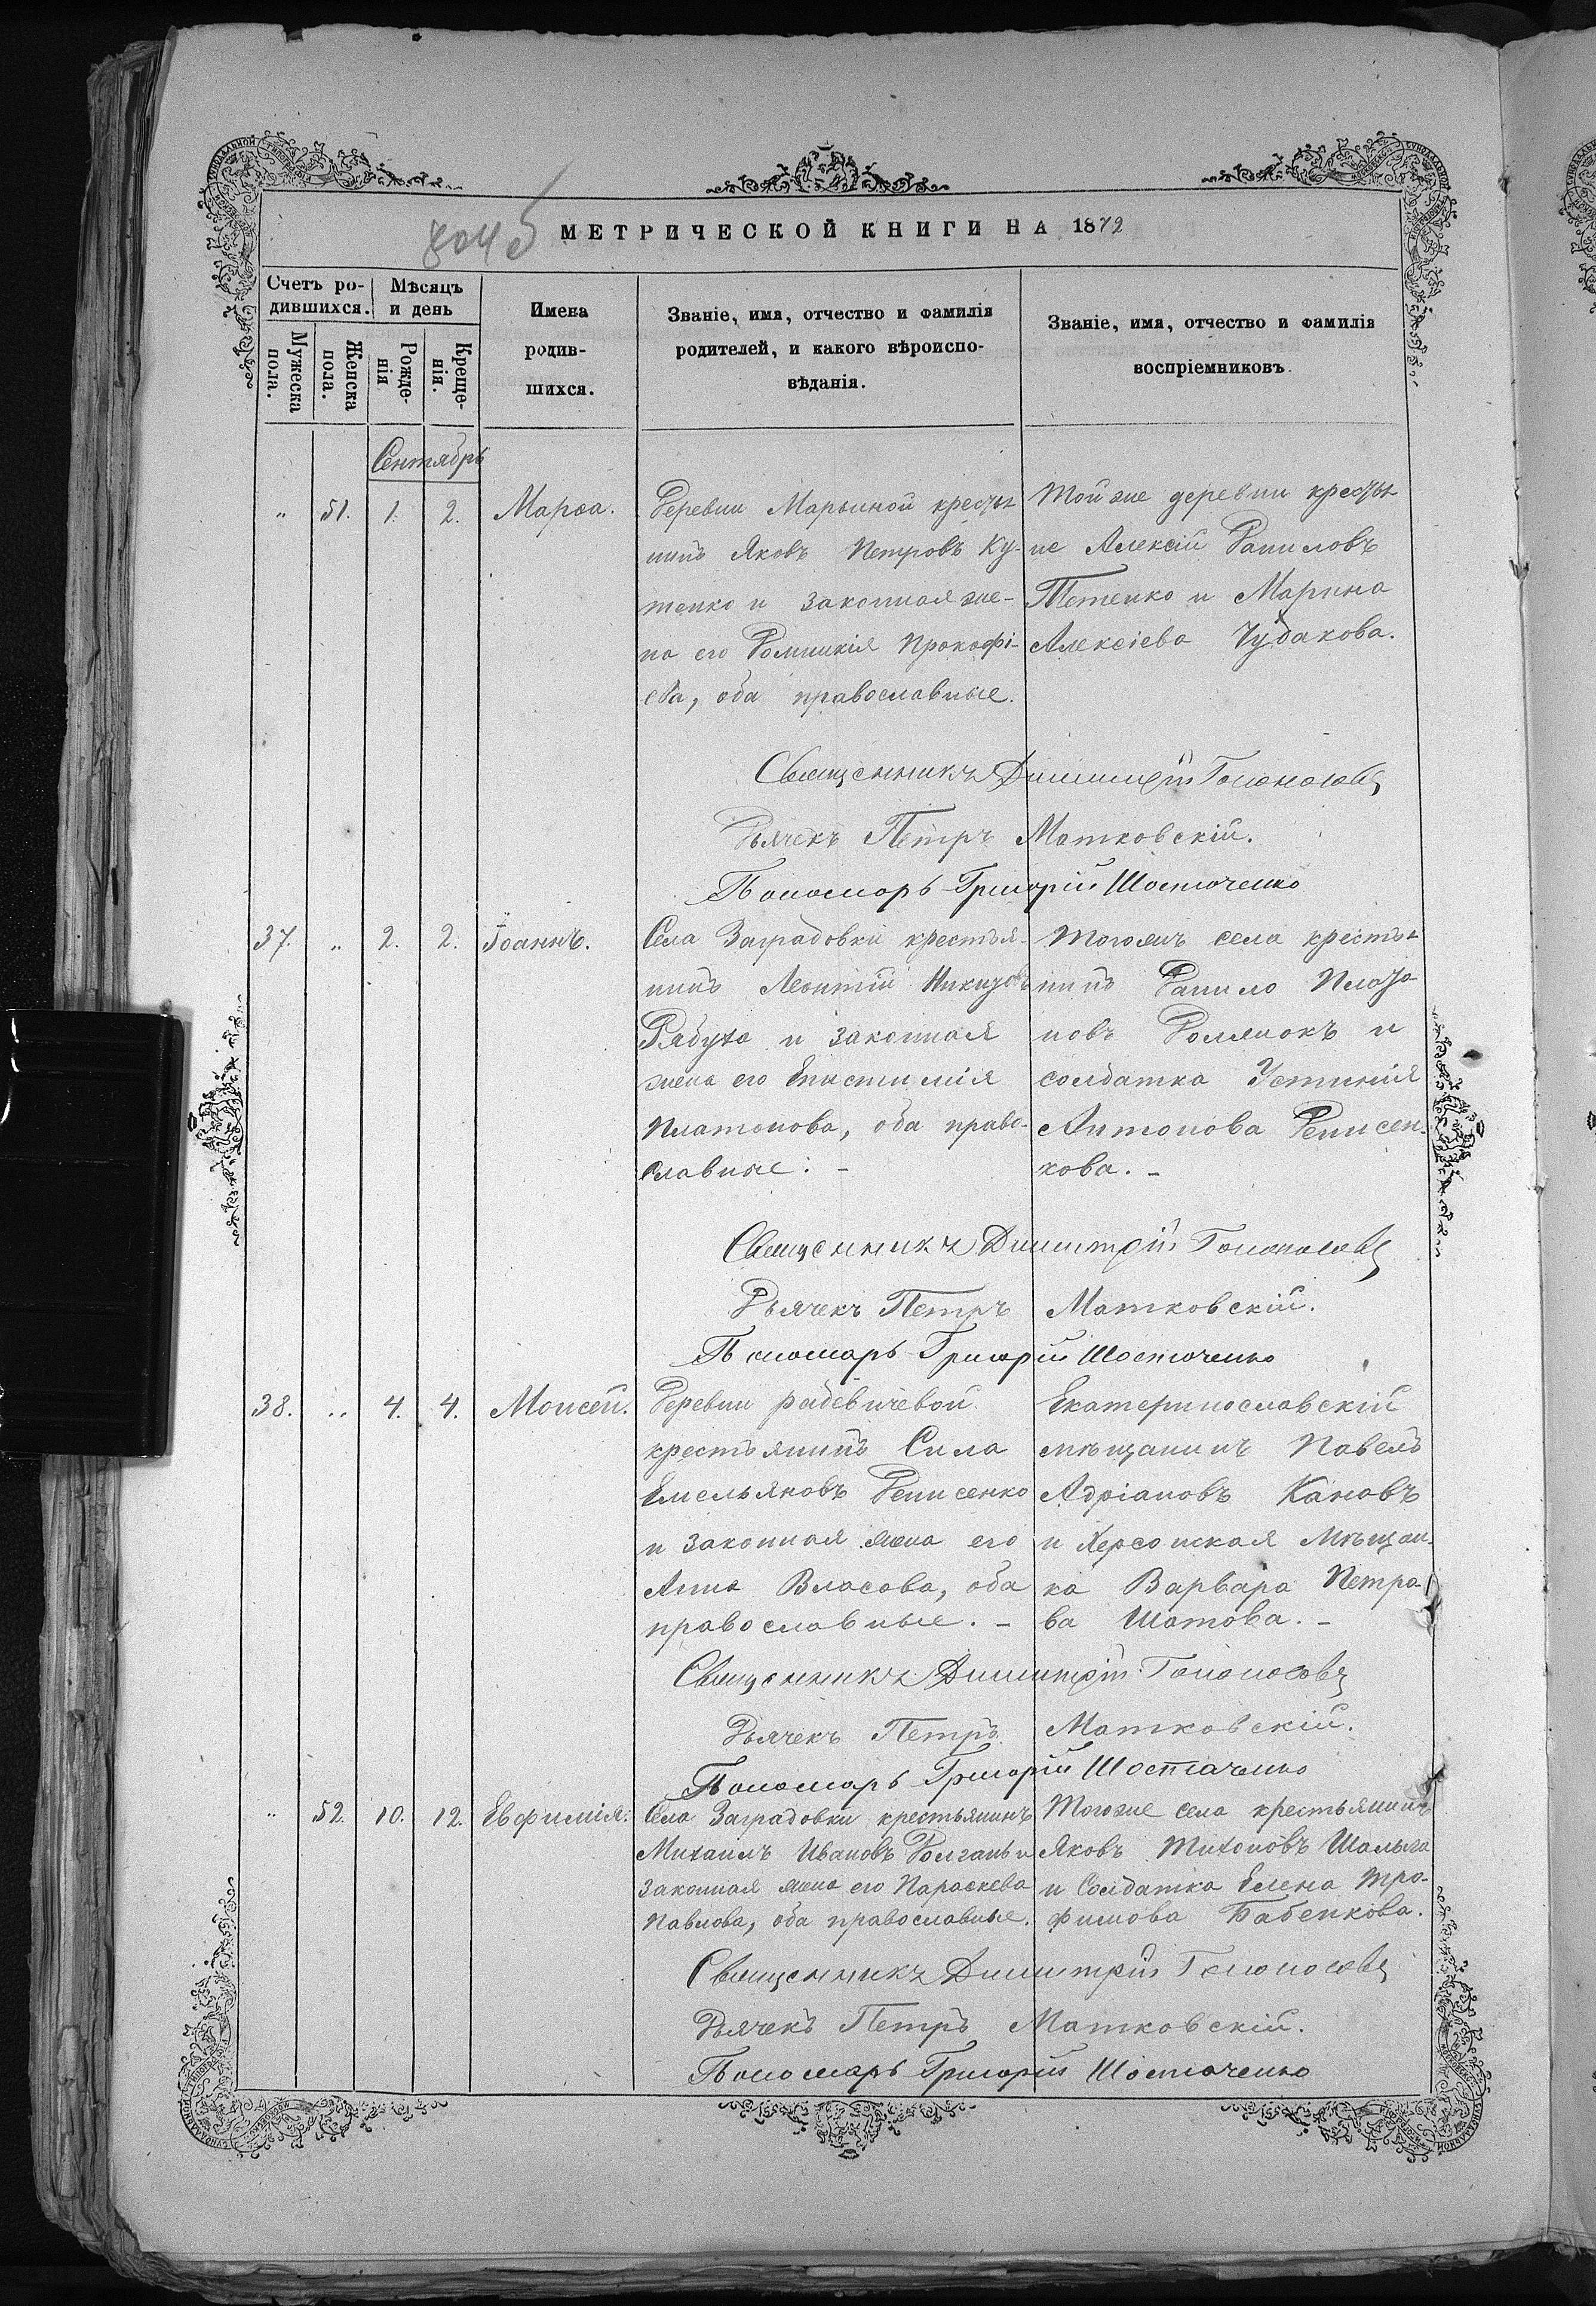 804 б
МЕТРИЧЕСКОЙ КНИГИ НА 1872
Счетъ ро-
дившихся.
Мужеска
пола.
Женска
пола.
Мѣсяцъ
и день
Рожде-
нія
Креще-
нія.
Имена
родив-
шихся.
Званіе, имя, отчество и фамилія
родителей, и какого вѣроиспо-
вѣданія.
Званіе, имя, отчество и фамилія
воспріемниковъ.
Сентябрь
" 51. 1. 2. Марѳа.
Деревни Марьиной крестья-
нинъ Яковъ Петровъ Ку-
тенко и законная же-
на его Домникія Прокофі-
ева, оба православные.
Той же деревни крестья-
не Алексій Даниловъ
Тетенко и Марина
Алексіева Чудакова.
Священникъ Димитрій Голоносовъ
Дьячекъ Петръ Матковскій.
Пономарь Григорій Шостаченко
37. " 2. 2. Іоаннъ.
Села Заградовки крестья-
нинъ Леонтій Никитовъ
Рябуха и законная
жена его Епистимія
Платонова, оба право-
славные. -
Тогожъ села крестья-
нинъ Данило Плато-
новъ Долянокъ и
солдатка Устинія
Антонова Денисен-
кова. -
Священникъ Димитрій Голоносовъ
Дьячекъ Петръ Матковскій.
Пономарь Григорій Шостаченко
38. " 4. 4. Моисей.
Деревни радевичевой
крестьянинъ Сила
Емельяновъ Денисенко
и законная жена его
Анна Власова, оба
православные. -
Екатеринославскій
мѣщанинъ Павелъ
Адріановъ Кановъ
и Херсонская мѣщан-
ка Варвара Петро-
ва Шатова. -
Священникъ Димитрій Голоносовъ
Дьячекъ Петръ Матковскій.
Пономарь Григорій Шостаченко
" 52. 10. 12. Евфимія.
Села Заградовки крестьянинъ
Михаилъ Ивановъ Долгань и
законная жена его Параскева
Павлова, оба православные.
Тогоже села крестьянинъ
Яковъ Тихоновъ Шалыга
и Солдатка Елена Тро-
фимова Бабенкова.
Священникъ Димитрій Голоносовъ
Дьячекъ Петръ Матковскій.
Пономарь Григорій Шостаченко